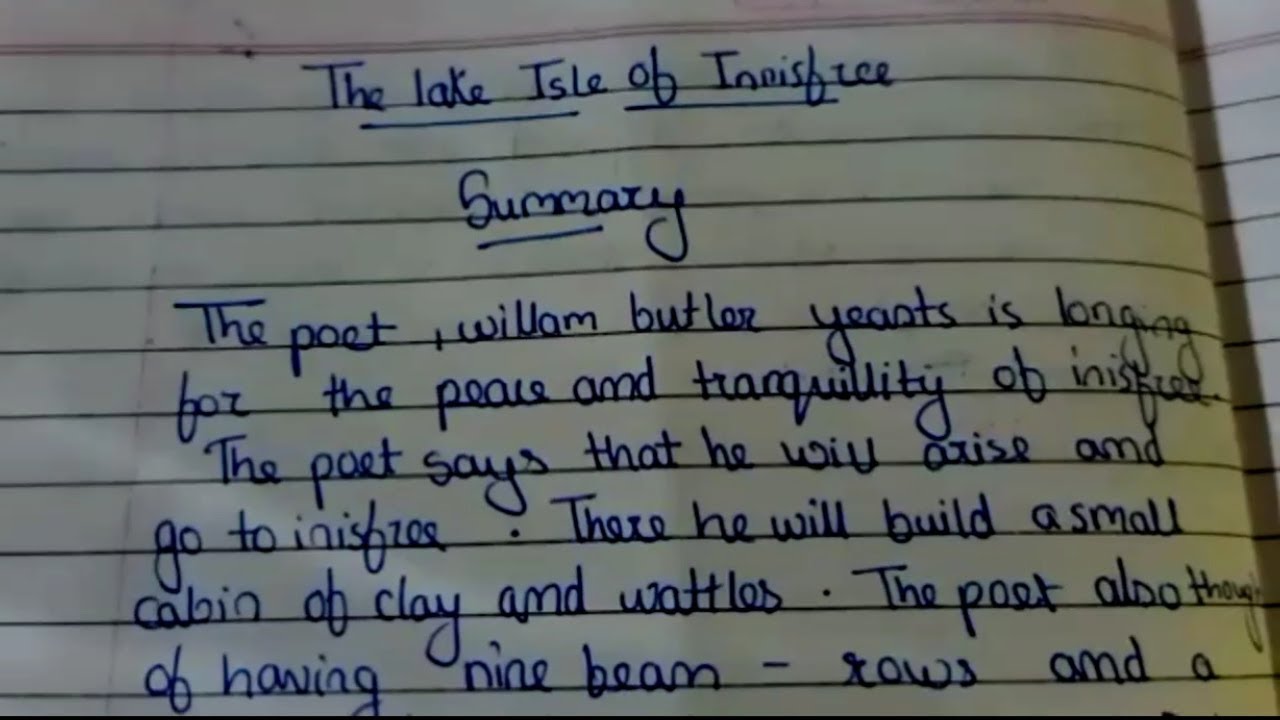 The lake Isle of Innisfree
Summary
The poet , willam butler yeasts is longing
for the peace and tranquillity of inisfree.
The poet says that he will arise and
go to inisfree . There he will build a small
cabin of clay and wattles . The poet also though
of having nine bean - rows and a